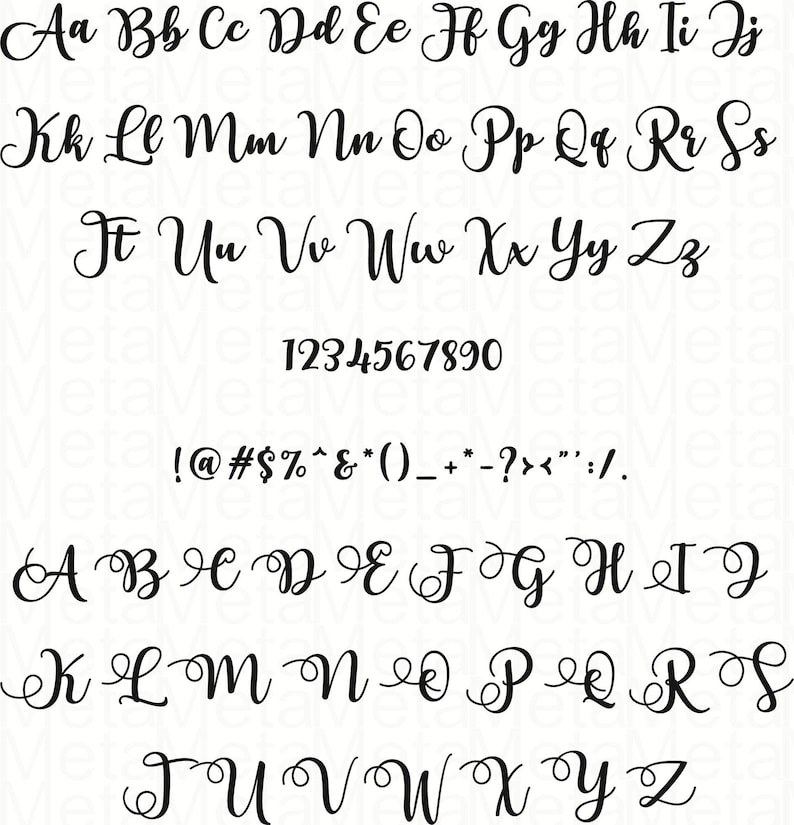 Aa Bb Cc Dd Ee Ff Gg Hh Ii Jj
Kk Ll Mm Nn Oo Pp Qq Rr Ss
Tt Uu Vv Ww Xx Yy Zz
1234567890
!@#$%^&*()_+*-?><"':/.
A B C D E F G H I J
K L M N O P Q R S
T U V W X Y Z